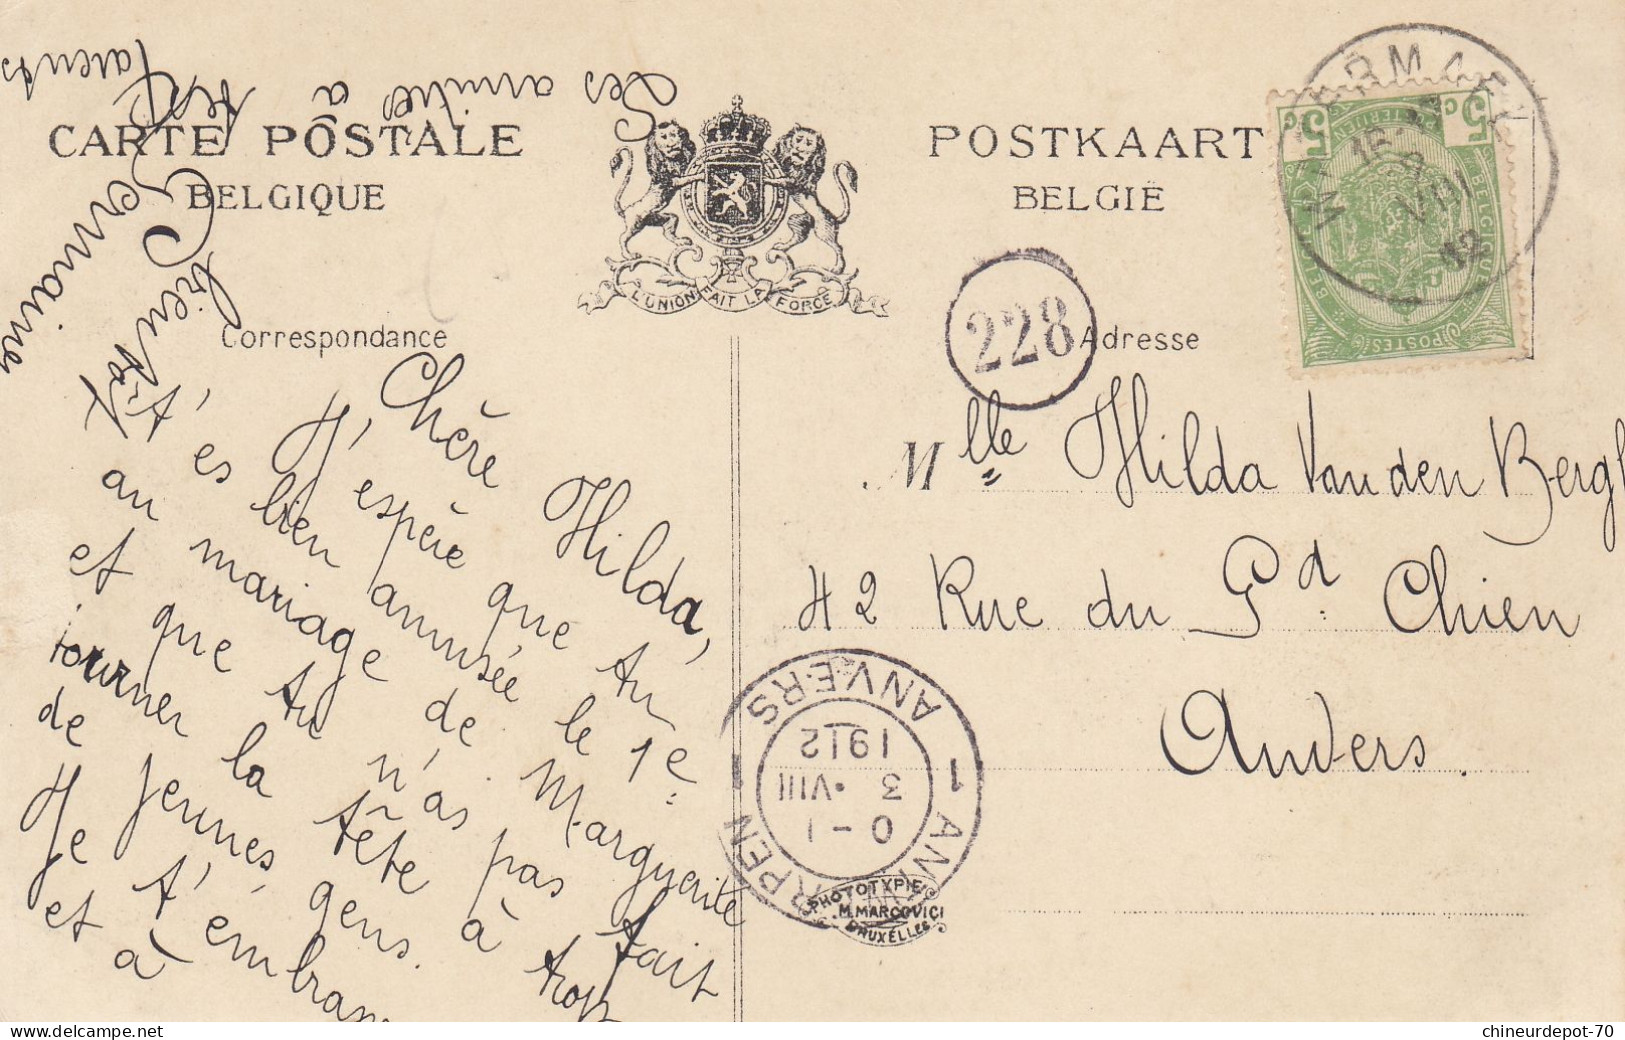 CARTE POSTALE
BELGIQUE
POSTKAART
BELGIË
L'UNION FAIT LA FORCE
Correspondance
Adresse
228
WATERMAEL
VIII
12
5 C
5 C
BELGIQUE
POSTES
Chère Hilda,
J'espère que tu
t'es bien amusée le 1e
au mariage de Marguerite
et que tu n'as pas fait
tourner la tête à trop
de jeunes gens.
Je t'embrasse
et à
bientôt
Germaine
Les amitiés à
tes
Parents
Mlle Hilda Van den Bergh
42 Rue du Gd Chien
Anvers.
1 ANTWERPEN - 1 ANVERS
0-1
3 ·VIII
1912
PHOTOTYPIE
M. MARCOVICI
BRUXELLES
chineurdepot-70